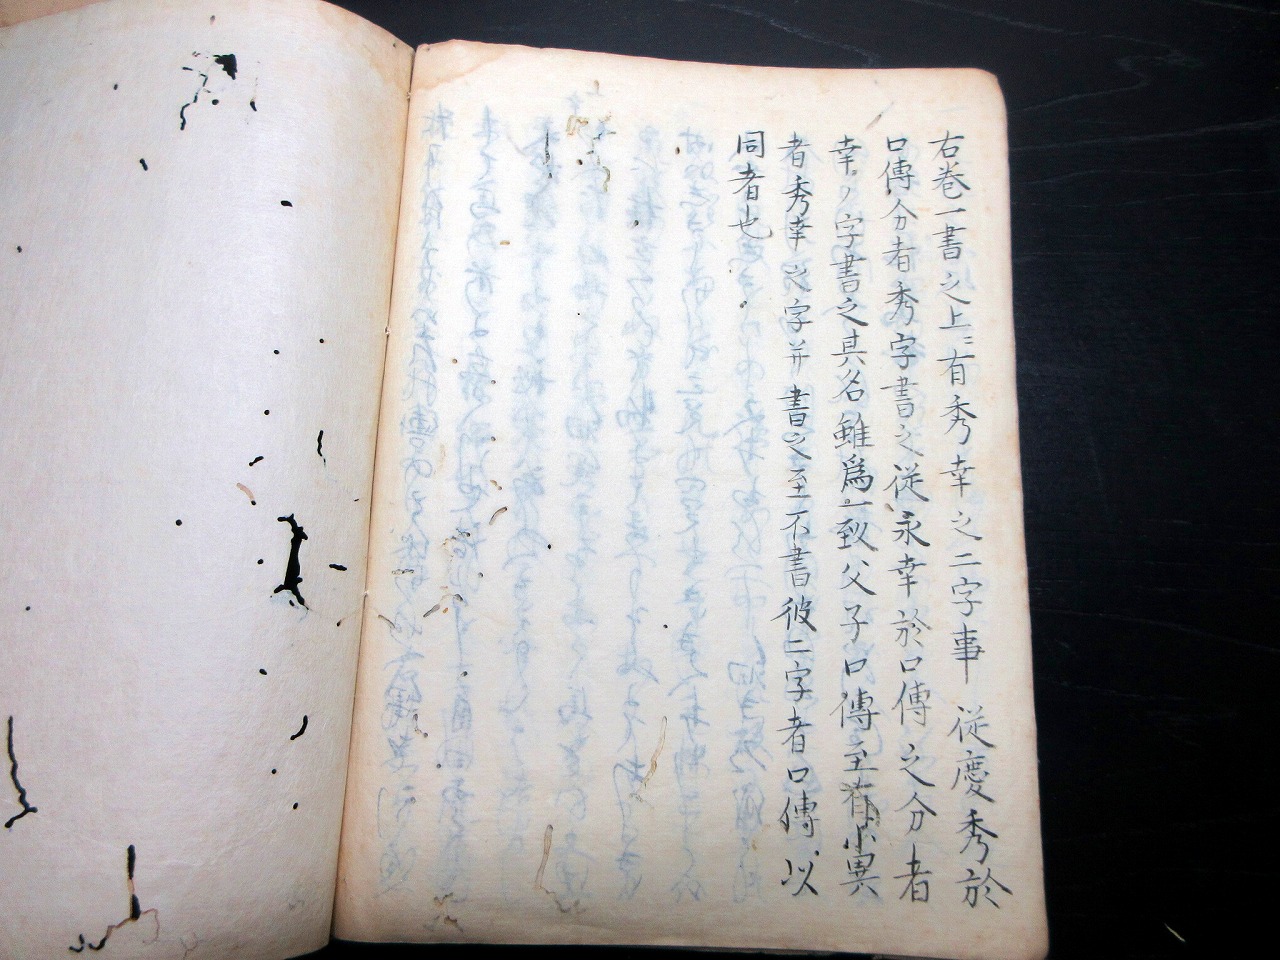 右巻一書之上ニ有秀幸之二字事 従慶秀於
口傳分者秀字書之従永幸於口傳之分者
幸ノ字書之其名雖爲一致父子口傳至有小異
者秀幸之字并書之至不書彼二字者口傳以
同者也